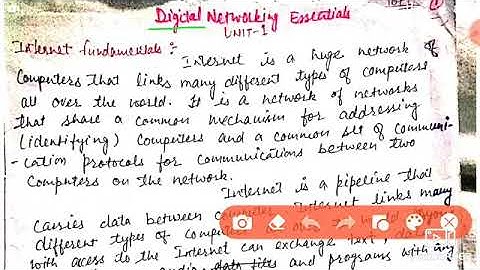 Digital Networking Essentials
UNIT-1
Internet fundamentals :- Internet is a huge network of
Computers that links many different types of computers
all over the world. It is a network of networks
that share a common mechanism for addressing
(identifying) Computers and a common set of communi-
-cation protocols for communications between two
Computers on the network.
Internet is a pipeline that
Carries data between Internet links many
different types of
with access to the Internet can exchange text,
data files and programs with any